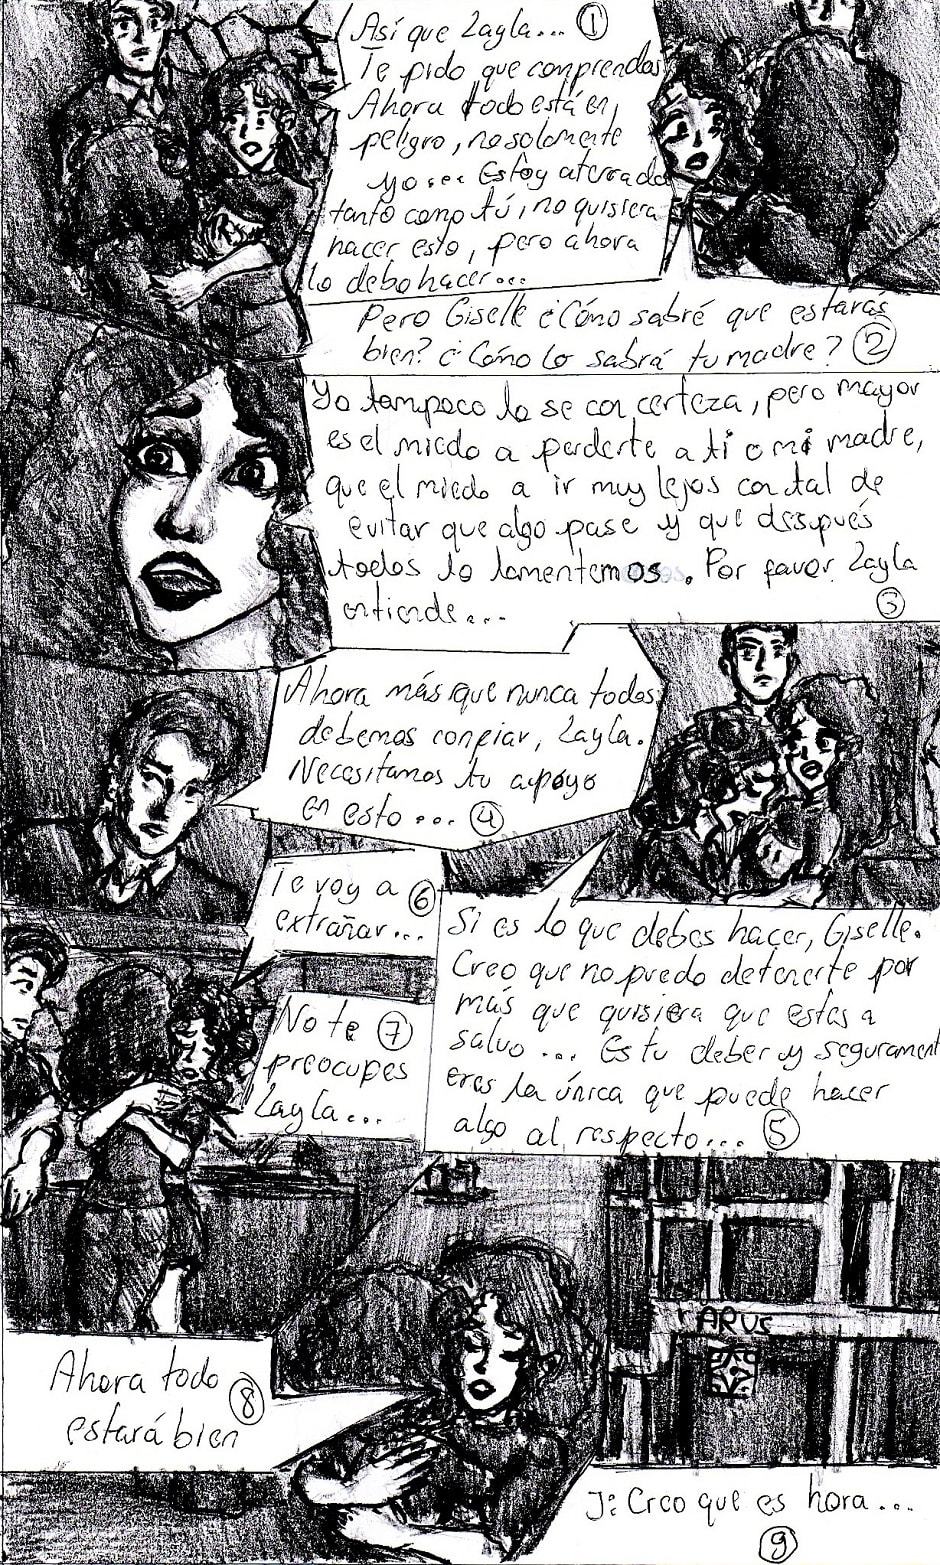 Así que Layla... ①
Te pido que comprendas
Ahora todo está en
peligro, no solamente
yo... Estoy aterrada
tanto como tú, no quisiera
hacer esto, pero ahora
lo debo hacer...
Pero Giselle ¿Cómo sabré que estarás
bien? ¿Cómo lo sabrá tu madre? ②
Yo tampoco lo se con certeza, pero mayor
es el miedo a perderte a ti o mi madre,
que el miedo a ir muy lejos con tal de
evitar que algo pase y que después
todos lo lamentemos. Por favor Layla
entiende... ③
Ahora más que nunca todos
debemos confiar, Layla.
Necesitamos tu apoyo
en esto... ④
Si es lo que debes hacer, Giselle.
Creo que no puedo detenerte por
más que quisiera que estes a
salvo... Es tu deber y segurament
eres la única que puede hacer
algo al respecto... ⑤
Te voy a ⑥
extrañar...
No te ⑦
preocupes
Layla...
Ahora todo ⑧
estará bien
ARUS
J: Creo que es hora...
⑨